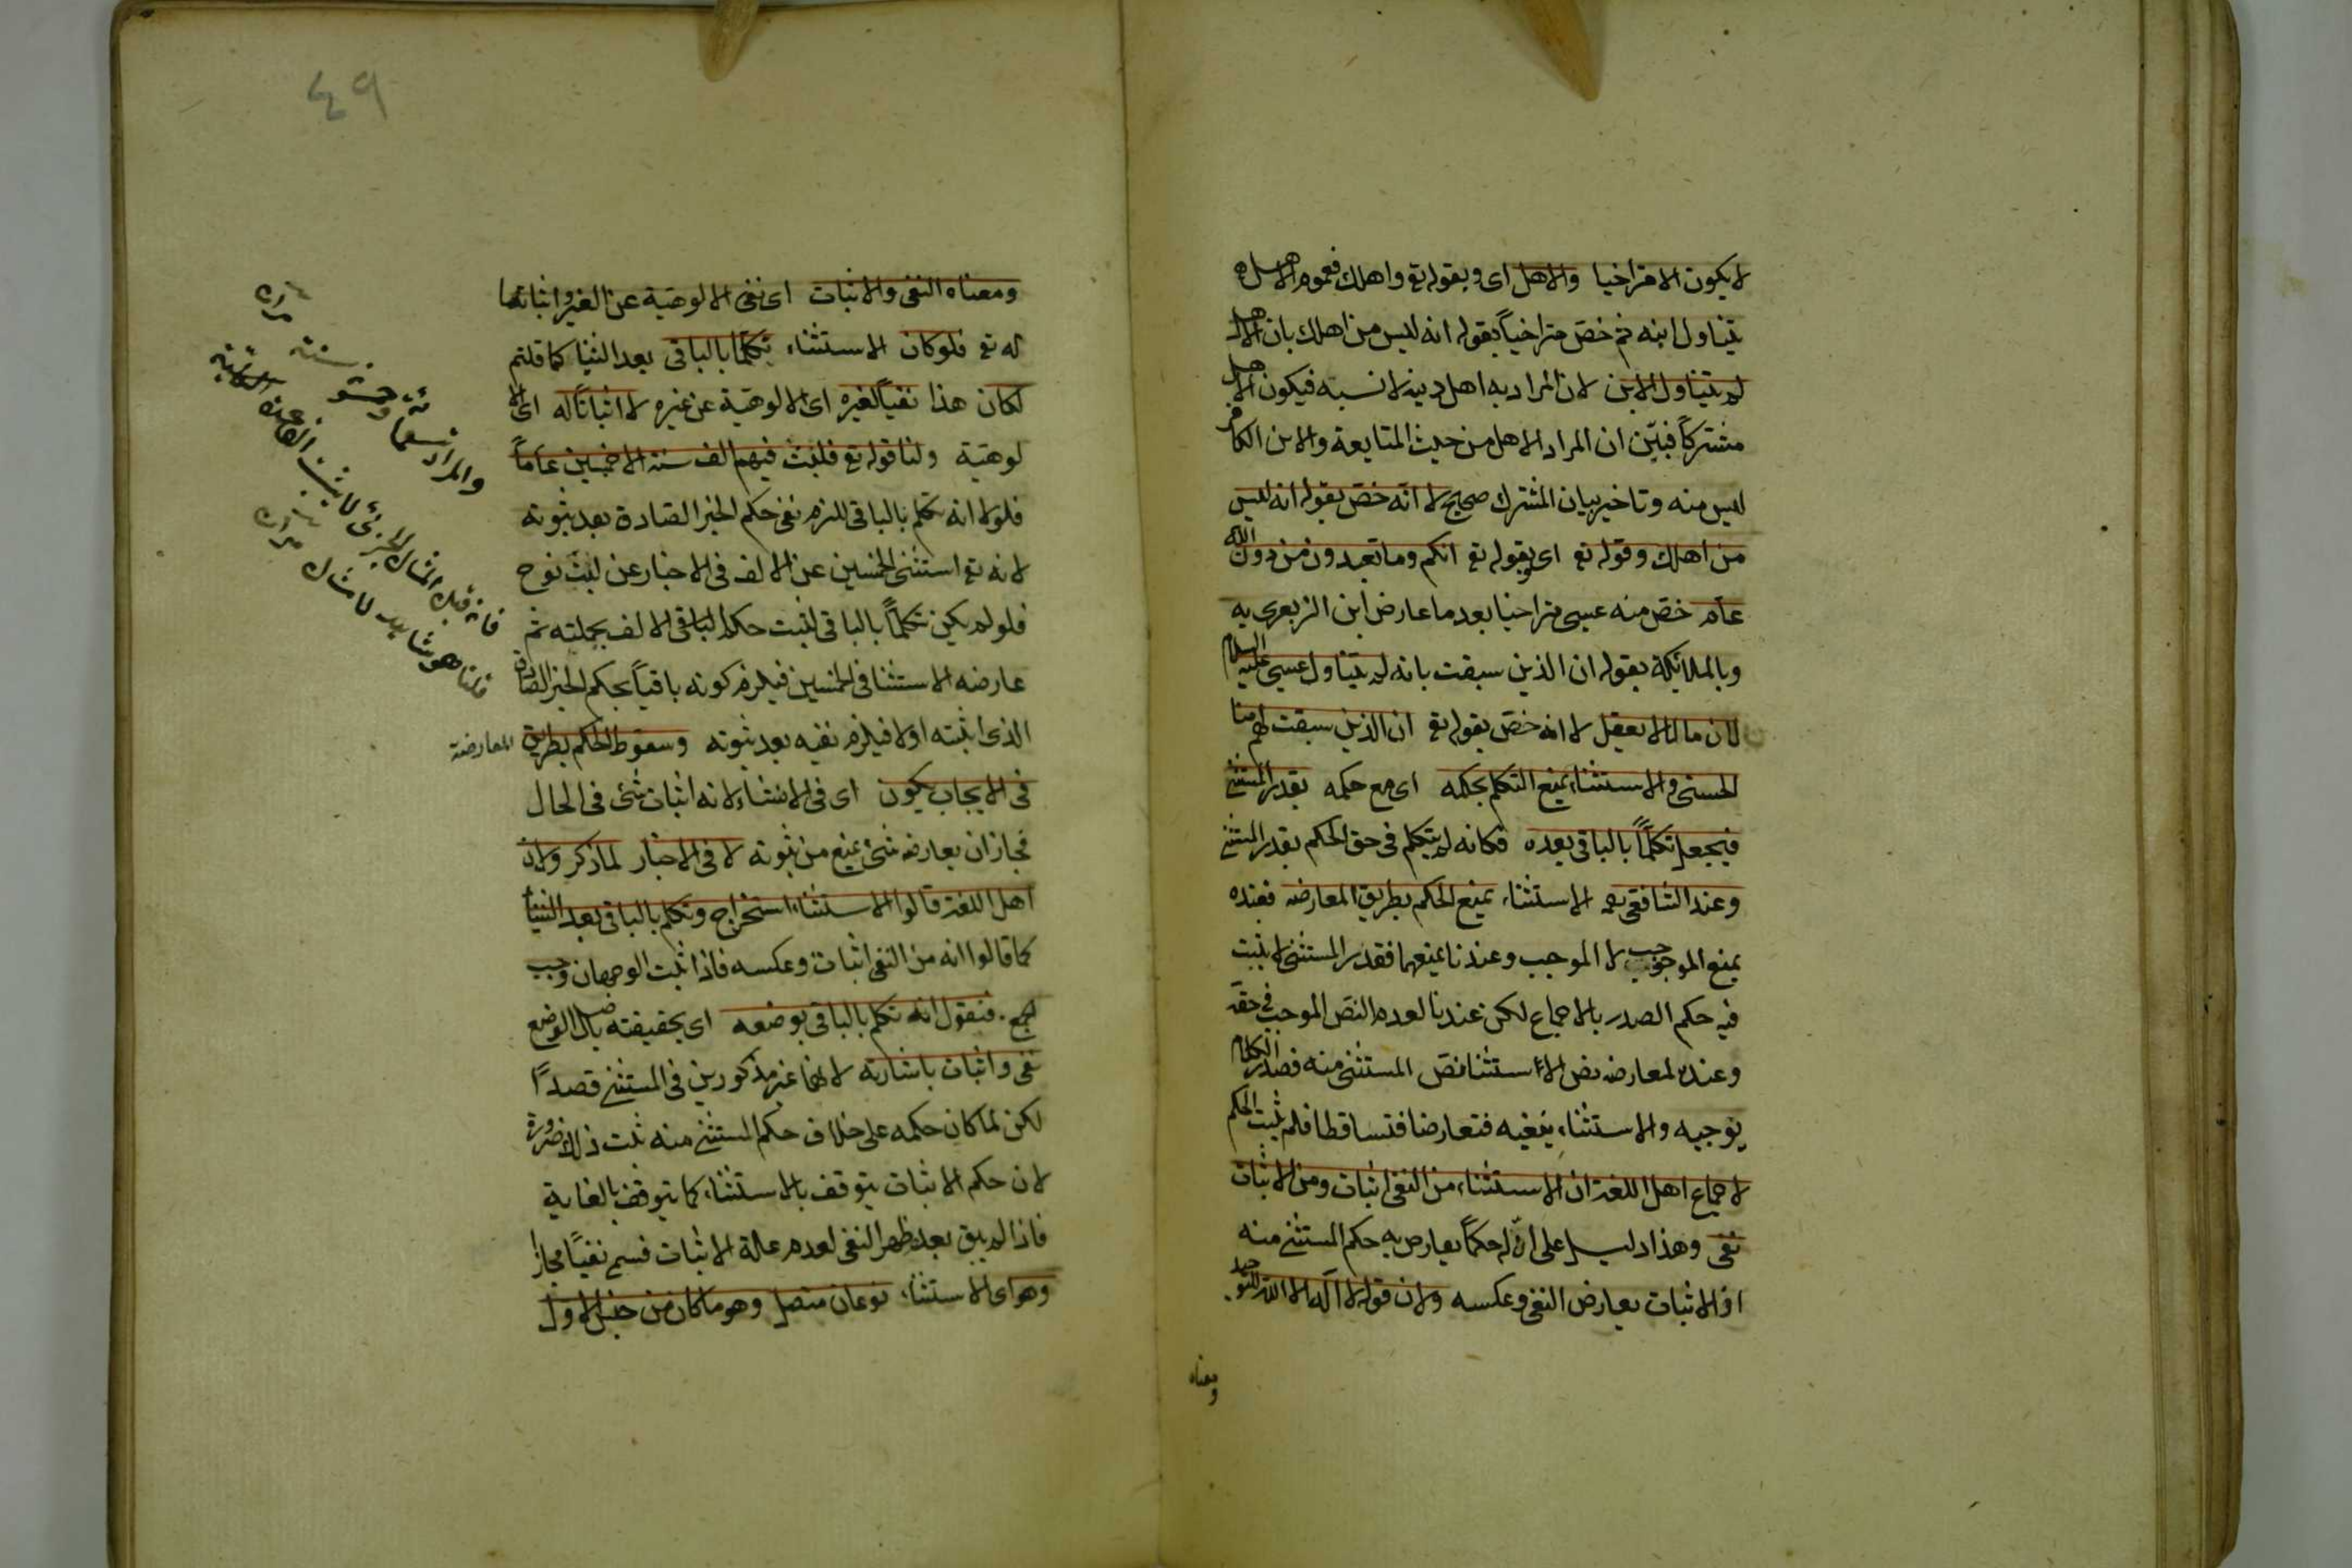 لا يكون الا متراخيا والاهل اى وبقوله تع واهلك فعموم الاهل
يتناول ابنه ثم خص متراخياً بقوله انه ليس من اهلك بان الاهل
لم يتناول الابن لان المراد به اهل دينه لا نسبه فيكون الاهل
مشتركاً فبيّن ان المراد الاهل من حيث المتابعة والابن الكافر
ليس منه وتاخير بيان المشترك صحيح لا انّه خصّ بقوله انه ليس
من اهلك وقوله تع اى بقوله تع انكم وما تعبدون من دون الله
عام خصّ منه عيسى متراخيا بعد ما عارض ابن الزبعرى به
وبالملائكة بقوله ان الذين سبقت بانه لم يتناول عيسى عليه السلام
لان ما لما لا يعقل لا انه خصّ بقوله تع ان الذين سبقت لهم منا
الحسنى والاستثناء يمنع التكلم بحكمه اى مع حكمه بقدر المستثنى
فيجعل تكلّماً بالباقى بعده فكانه لم يتكلم فى حق الحكم بقدر المستثنى
وعند الشافعى رحمه الاستثناء يمنع الحكم بطريق المعارضه فعنده
يمنع الموجب لا الموجب وعندنا يمنعهما فقدر المستثنى لا يثبت
فيه حكم الصدر بالاجماع لكن عندنا لعدم النصّ الموجب فى حقّه
وعنده لمعارضه نص الاستثنا نصّ المستثنى منه فصدر الكلام
يوجبه والاستثناء ينفيه فتعارضا فتساقطا فلم يثبت الحكم
لاجماع اهل اللغة ان الاستثناء من النفى اثبات ومن الاثبات
نفى وهذا دليل على انّ له حكماً يعارض به حكم المستثنى منه
اذ الاثبات يعارض النفى وعكسه ولان قوله لا اله الا الله للتوحيد
ومعناه
٤٩
ومعناه النفى والاثبات اى نفى الالوهيّة عن الغير واثباتها
له تع فلو كان الاستثناء تكلّما بالباقى بعد الثنيا كما قلتم
لكان هذا نفياً لغيره اى الالوهيّة عن غيره لا اثباتاً له اى الا
لوهيّة ولنا قوله تع فلبث فيهم الف سنة الا خمسين عاماً
فلولا انه تكلم بالباقى للزم نفى حكم الخبر الصادق بعد ثبوته
لانه تع استثنى الخمسين عن الالف فى الاخبار عن لبث نوح
فلو لم يكن تكلّماً بالباقى لثبت حكم الباقى الالف بجملته ثم
عارضه الاستثنا فى الخمسين فيلزم كونه باقياً بحكم الخبر الصادق
الذى اثبته اولا فيلزم نفيه بعد ثبوته وسقوط الحكم بطريق المعارضة
فى الايجاب يكون اى فى الانشاء لانه اثبات شئ فى الحال
فجاز ان يعارضه شئ يمنع من ثبوته لا فى الاخبار لما ذكر ولان
اهل اللغة قالوا الاستثناء استخراج وتكلم بالباقى بعد الثنيا
كما قالوا انه من النفى اثبات وعكسه فاذا ثبت الوجهان وجب
الجمع فنقول انه تكلم بالباقى بوضعه اى بحقيقته باصل الوضع
نفى واثبات باشارته لانهما غير مذكورين فى المستثنى قصداً
لكن لما كان حكمه على خلاف حكم المستثنى منه ثبت ذلك ضرورة
لان حكم الاثبات يتوقف بالاستثناء كما يتوقف بالغاية
فاذا لم يبق بعده ظهر النفى لعدم علة الاثبات فسمى نفياً مجازا
وهو اى الاستثناء نوعان متصل وهو ما كان من جنس الاول
والمراد تسعمائة وخمسون سنة
فان قيل المثال الجزئى لا يثبت القاعدة
قلنا هو شاهد لا مثال